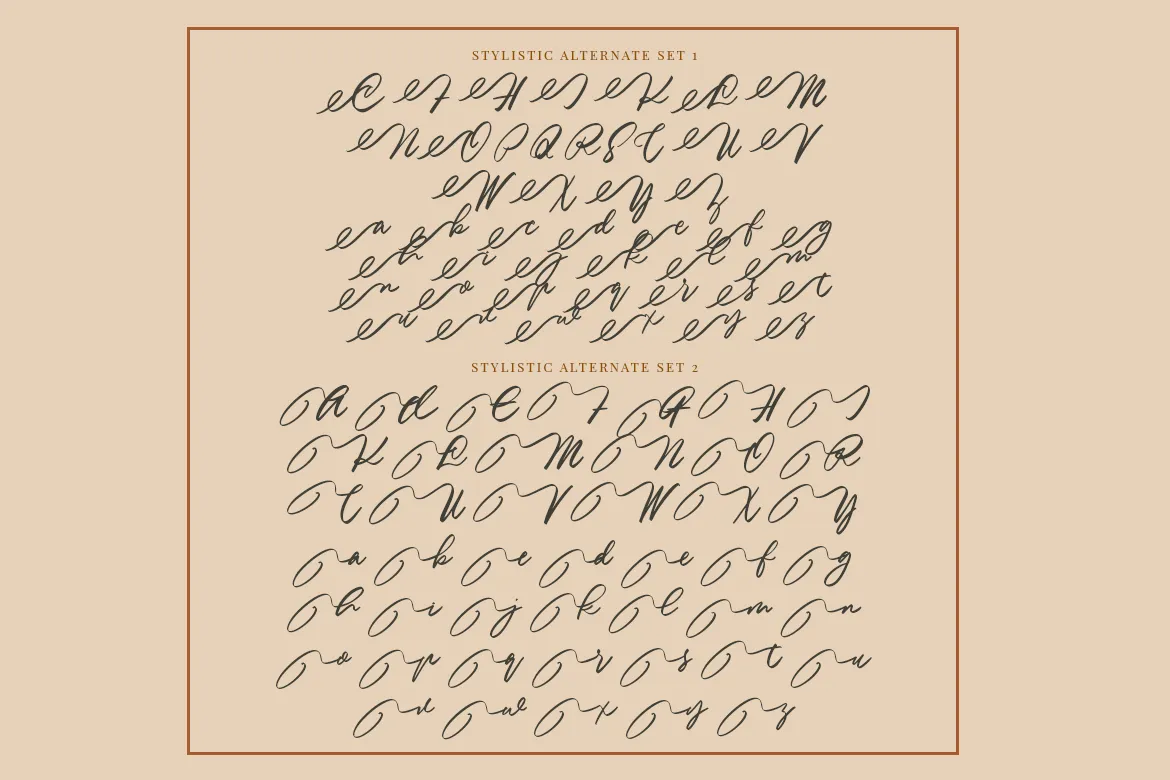 STYLISTIC ALTERNATE SET 1
C F H J K L M
N O P Q R S T U V
W X Y Z
a b c d e f g
h i j k l m
n o p q r s t
u v w x y z
STYLISTIC ALTERNATE SET 2
A d E F G H J
K L M N O R
T U V W X Y
a b c d e f g
h i j k l m n
o p q r s t u
v w x y z